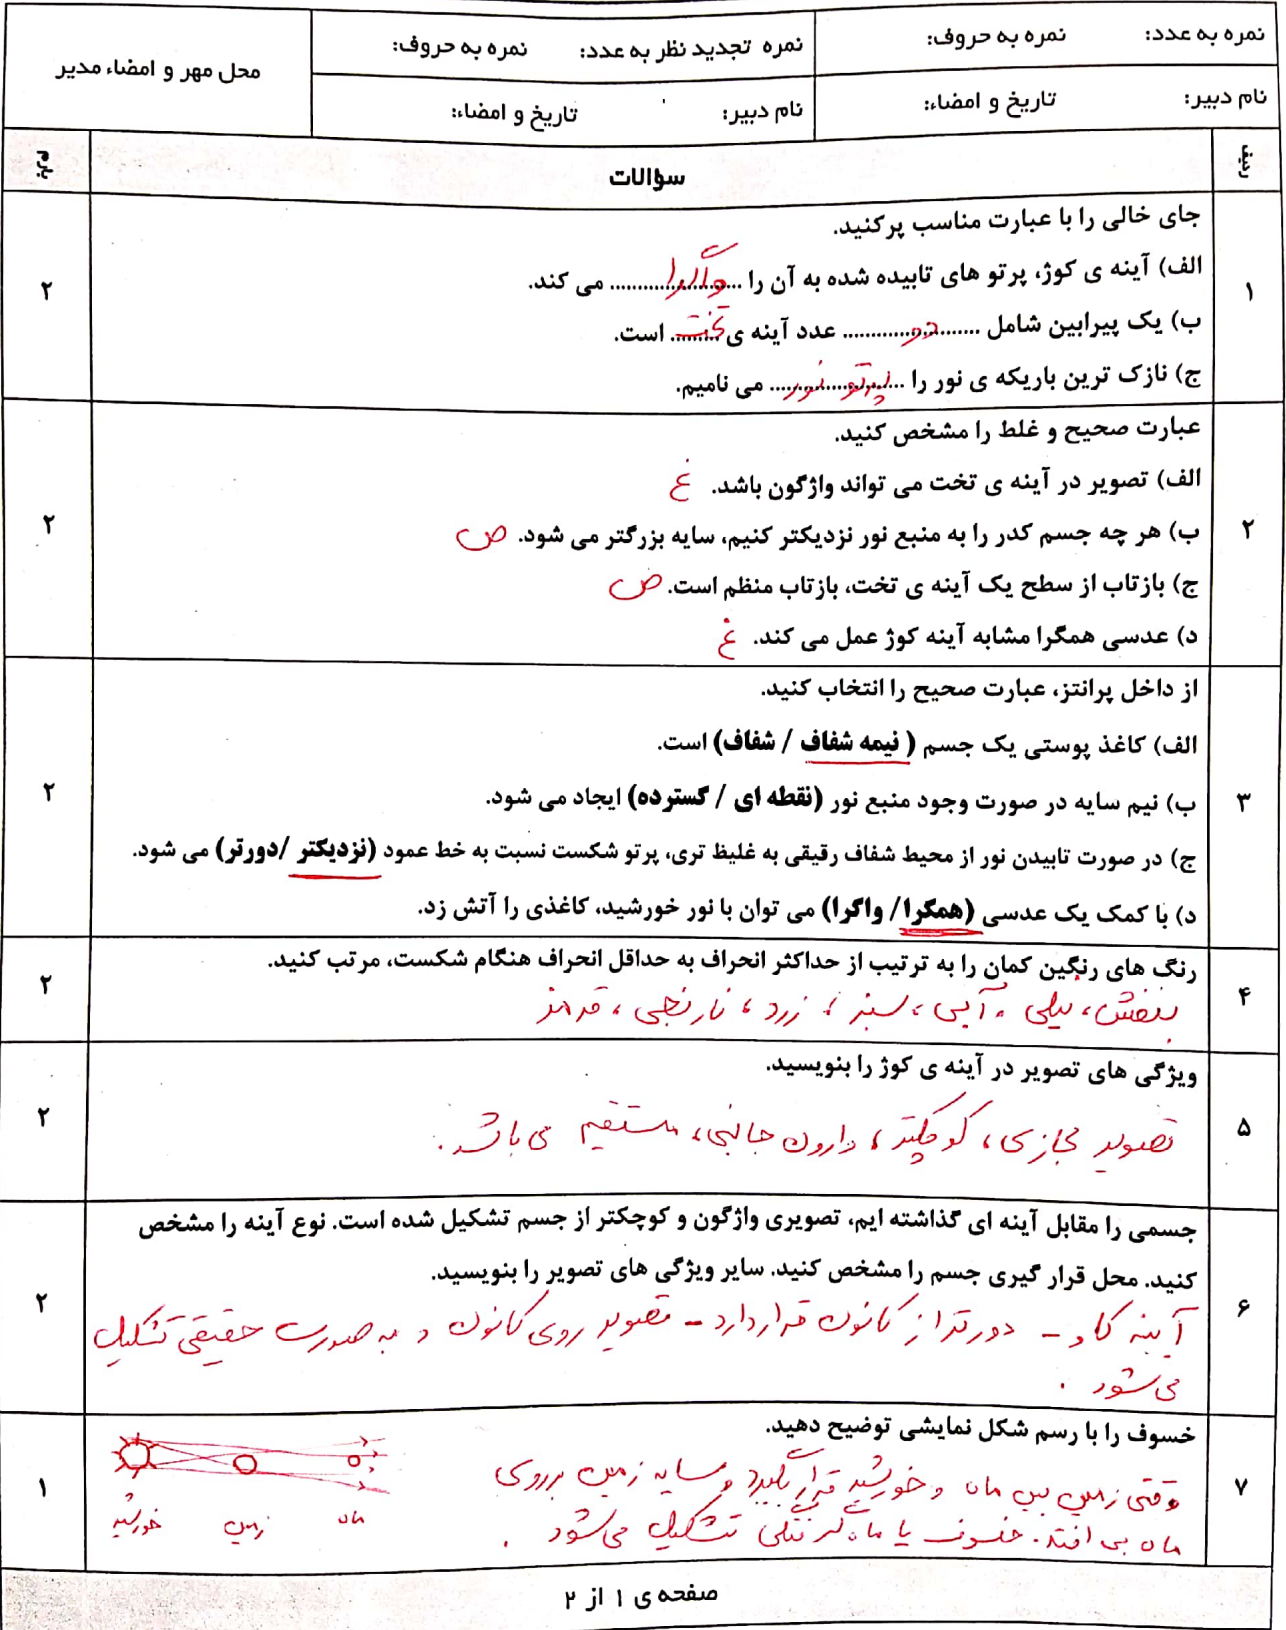 نمره به عدد: نمره به حروف: نمره تجدید نظر به عدد: نمره به حروف: محل مهر و امضاء مدیر
نام دبیر: تاریخ و امضاء: نام دبیر: تاریخ و امضاء:
ردیف سؤالات بارم
جای خالی را با عبارت مناسب پرکنید.
۱ الف) آینه ی کوژ، پرتو های تابیده شده به آن را ........ واگرا ........ می کند. ۲
ب) یک پیرابین شامل ........ دو ........ عدد آینه ی ... تخت ... است.
ج) نازک ترین باریکه ی نور را ........ پرتو نور ........ می نامیم.
عبارت صحیح و غلط را مشخص کنید.
الف) تصویر در آینه ی تخت می تواند واژگون باشد. غ
۲ ب) هر چه جسم کدر را به منبع نور نزدیکتر کنیم، سایه بزرگتر می شود. ص ۲
ج) بازتاب از سطح یک آینه ی تخت، بازتاب منظم است. ص
د) عدسی همگرا مشابه آینه کوژ عمل می کند. غ
از داخل پرانتز، عبارت صحیح را انتخاب کنید.
الف) کاغذ پوستی یک جسم ( نیمه شفاف / شفاف) است.
۳ ب) نیم سایه در صورت وجود منبع نور (نقطه ای / گسترده) ایجاد می شود. ۲
ج) در صورت تابیدن نور از محیط شفاف رقیقی به غلیظ تری، پرتو شکست نسبت به خط عمود (نزدیکتر /دورتر) می شود.
د) با کمک یک عدسی (همگرا/ واگرا) می توان با نور خورشید، کاغذی را آتش زد.
۴ رنگ های رنگین کمان را به ترتیب از حداکثر انحراف به حداقل انحراف هنگام شکست، مرتب کنید. ۲
بنفش، نیلی، آبی، سبز، زرد، نارنجی، قرمز
ویژگی های تصویر در آینه ی کوژ را بنویسید.
۵ تصویر مجازی، کوچکتر، وارون جانبی، مستقیم می باشد. ۲
جسمی را مقابل آینه ای گذاشته ایم، تصویری واژگون و کوچکتر از جسم تشکیل شده است. نوع آینه را مشخص
کنید. محل قرار گیری جسم را مشخص کنید. سایر ویژگی های تصویر را بنویسید.
۶ آینه کاو - دورتر از کانون قرار دارد - تصویر روی کانون و به صورت حقیقی تشکیل ۲
می شود.
خسوف را با رسم شکل نمایشی توضیح دهید.
۷ وقتی زمین بین ماه و خورشید قرار بگیرد و سایه زمین بر روی ۱
ماه بی افتد. خسوف یا ماه گرفتگی تشکیل می شود.
ماه زمین خورشید
صفحه ی ۱ از ۲